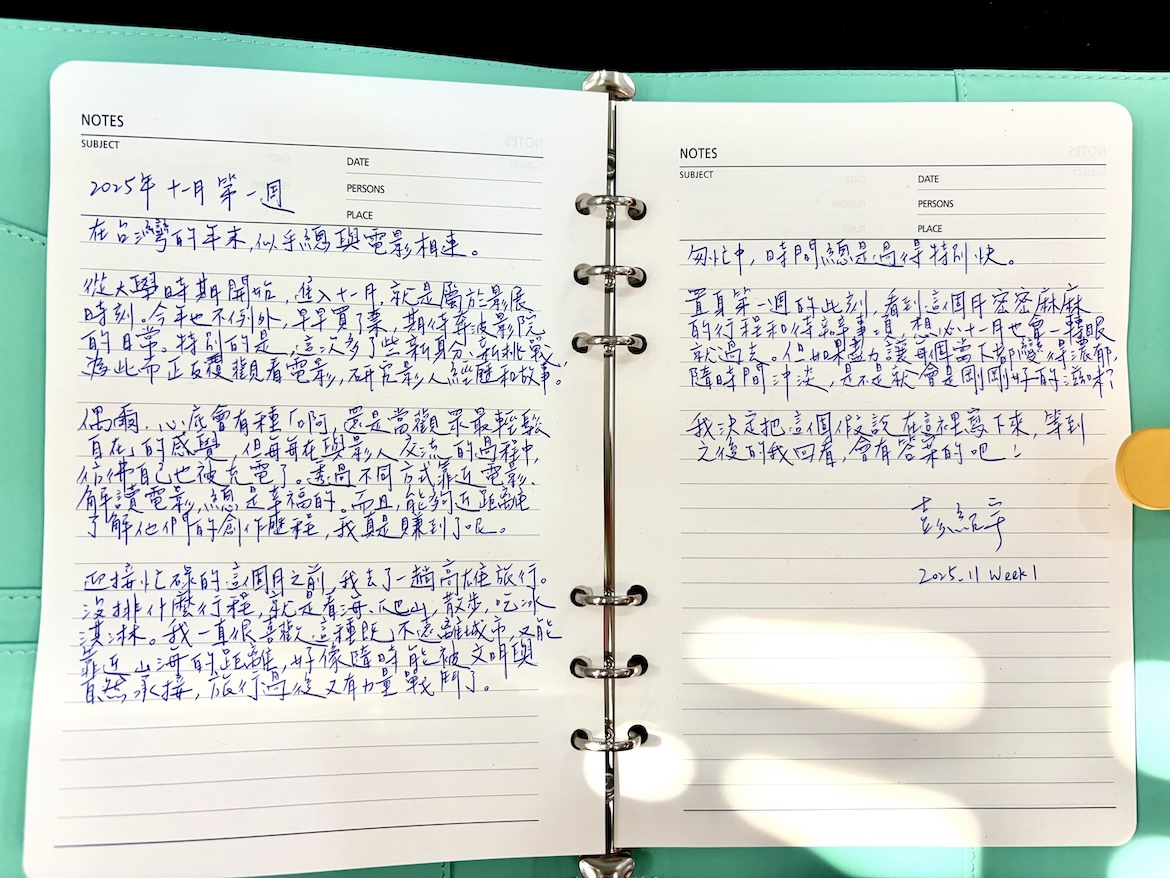 NOTES
SUBJECT
DATE
PERSONS
PLACE
2025年 十一月 第一週
在台灣的年末,似乎總與電影相連。
從大學時期開始,進入十一月,就是屬於影展
時刻。今年也不例外,早早買了票,期待奔波影院
的日常。特別的是,這次多了些新身分、新挑戰,
為此而正反覆觀看電影,研究影人經歷和故事。
偶爾,心底會有種「啊,還是當觀眾最輕鬆
自在」的感覺,但每每在與影人交流的過程中,
彷彿自己也被充電了。透過不同方式靠近電影、
解讀電影,總是幸福的。而且,能夠近距離
了解他們的創作歷程,我真是賺到了呢。
迎接忙碌的這個月之前,我去了一趟高雄旅行。
沒排什麼行程,就是看海、爬山,散步,吃冰
淇淋。我一直很喜歡這種既不遠離城市,又能
靠近山海的距離,好像隨時能被文明與
自然承接,旅行過後又有力量戰鬥了。
NOTES
SUBJECT
DATE
PERSONS
PLACE
匆忙中,時間總是過得特別快。
置身第一週的此刻,看到這個月密密麻麻
的行程和待辦事項,想必十一月也會一轉眼
就過去。但如果盡力讓每個當下都變得濃郁,
隨時間沖淡,是不是就會是剛剛好的滋味?
我決定把這個假設在這裡寫下來,等到
之後的我回看,會有答案的吧!
彭紹宇
2025.11 Week 1